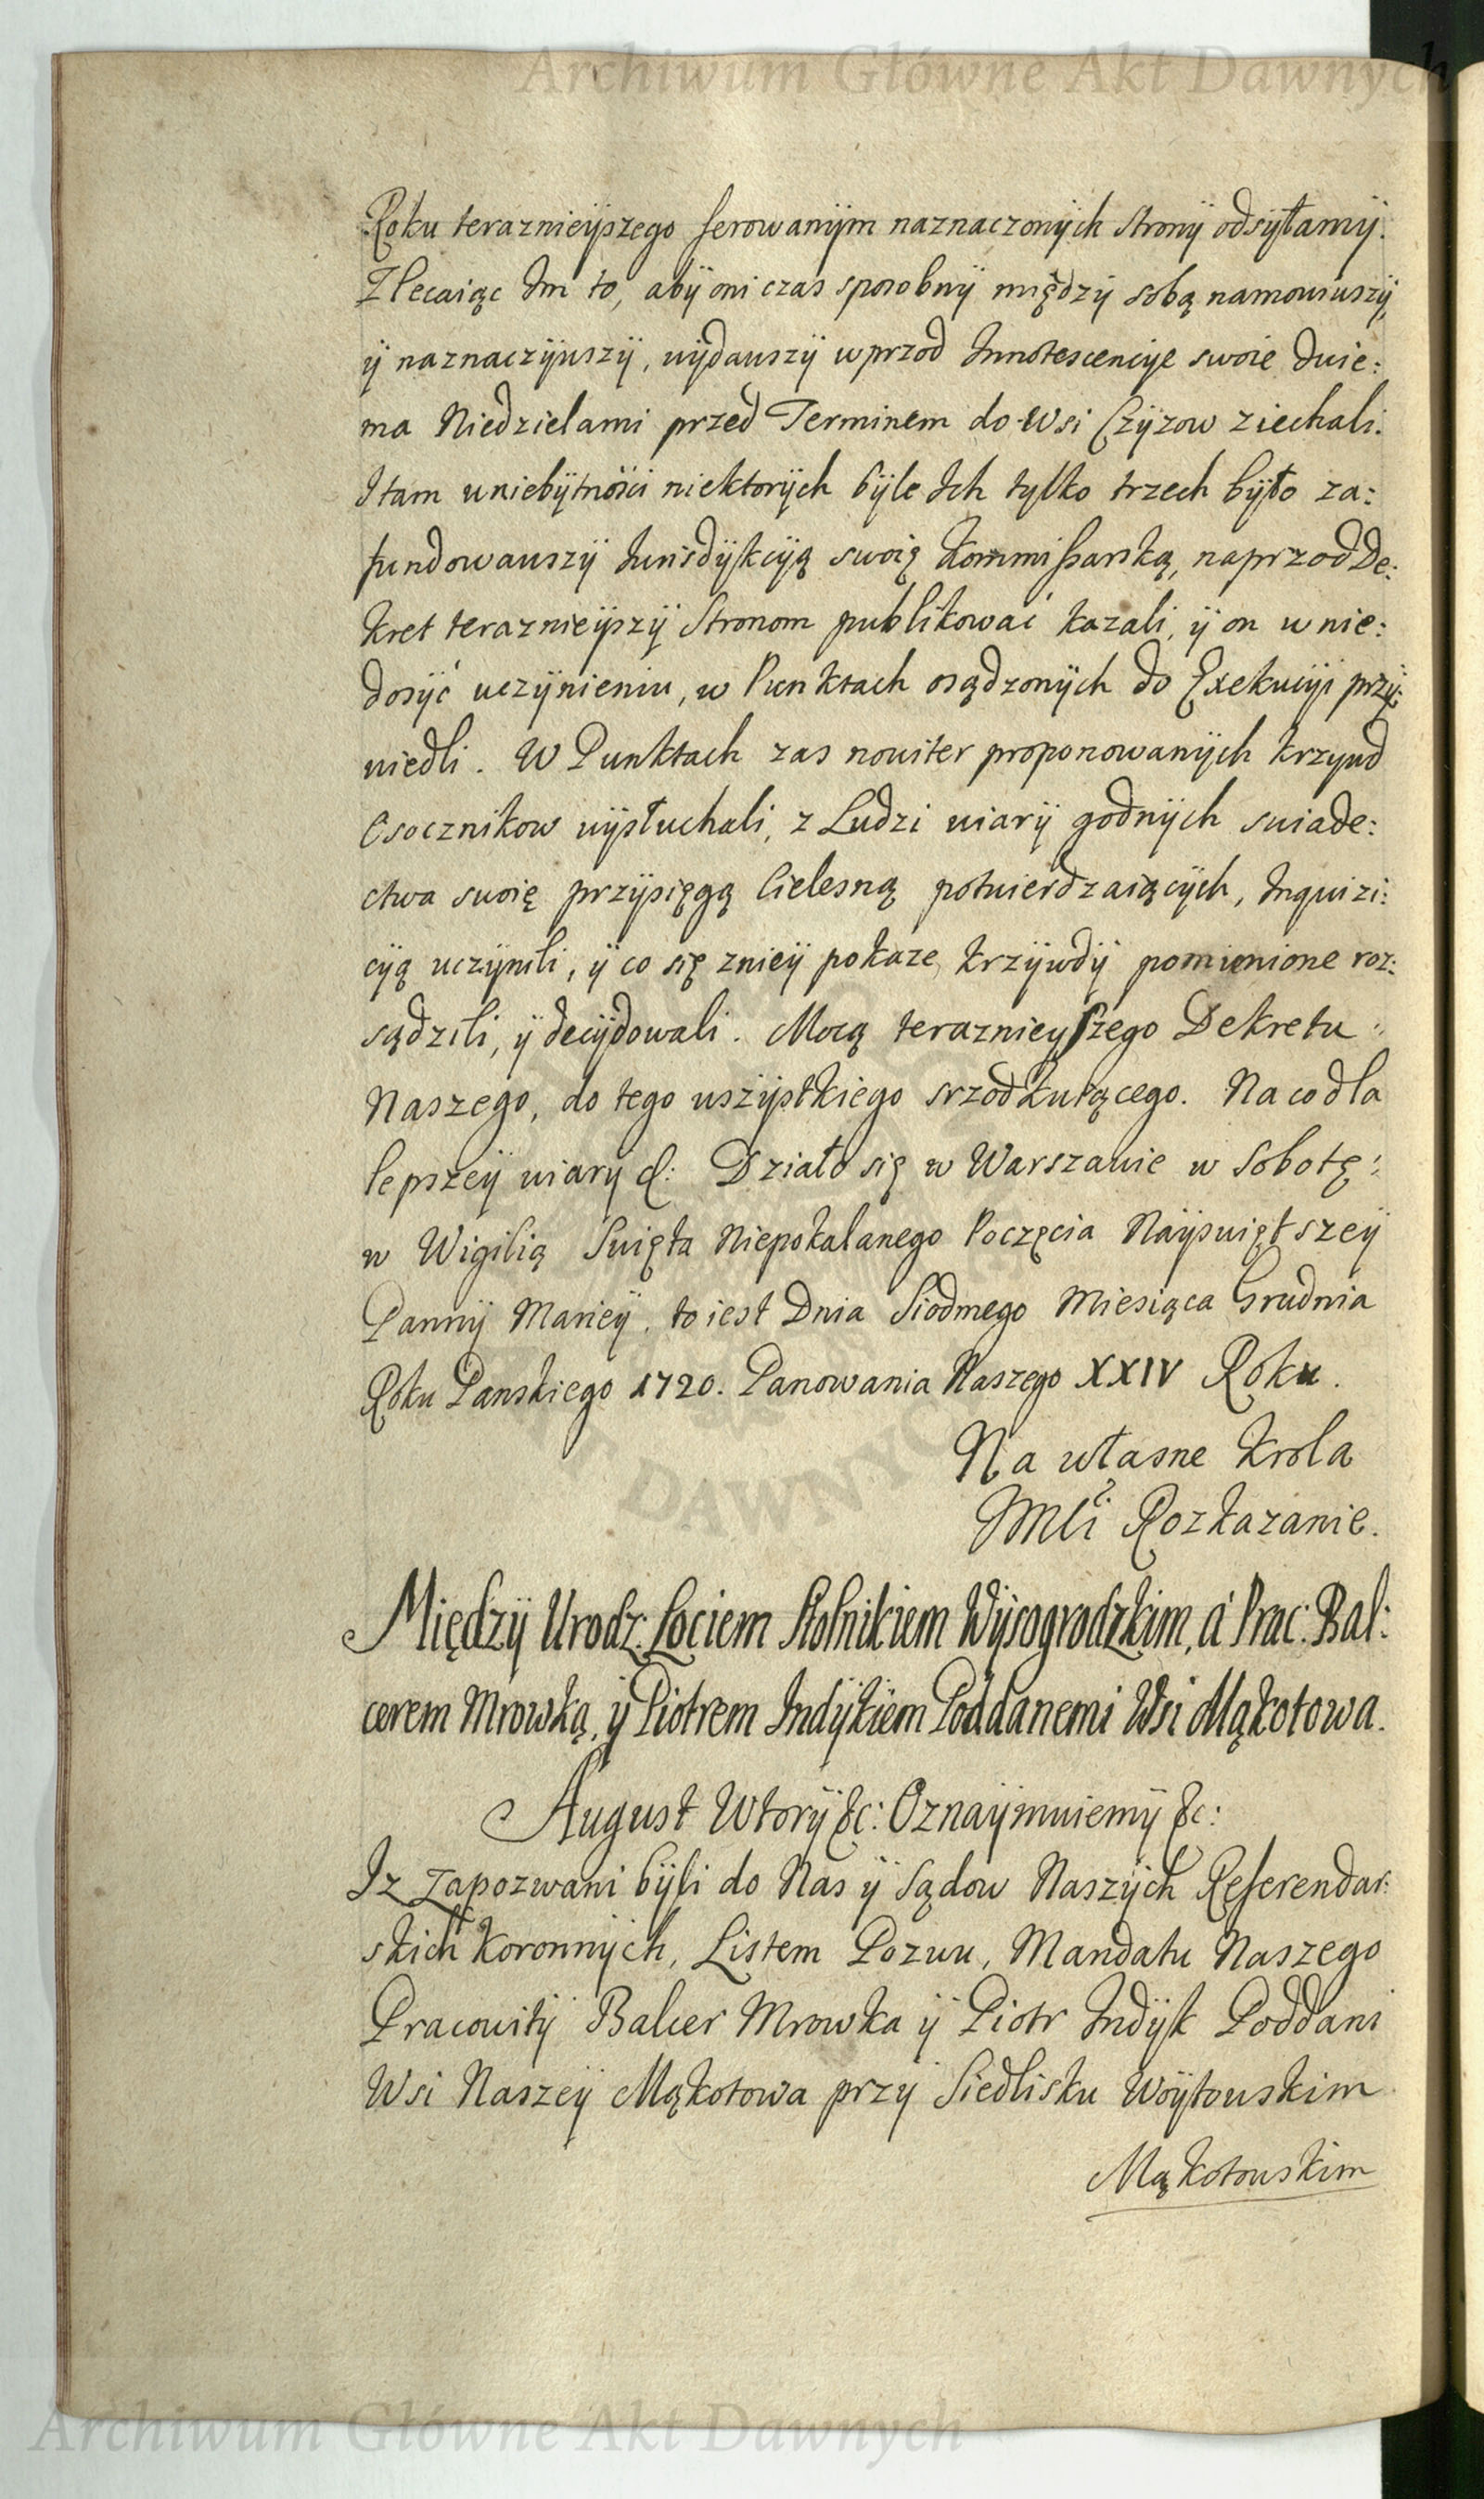 Archiwum Główne Akt Dawnych
Roku teraznieyszego ferowanÿm naznaczonÿch Stronÿ odsÿłamÿ.
Zlecaiąc Im to, abÿ oni czas sposobnÿ międzÿ sobą namowiwszÿ,
ÿ naznaczÿwszÿ, wÿdawszÿ wprzod Innotescencÿe swoie dwie:
ma Niedzielami przed Terminem do Wsi Czÿzow ziechali.
I tam w niebÿtności niektorÿch bÿle Ich tylko trzech bÿło za:
fundowawszÿ Iurisdÿkcÿą swoię Kommissarską, naprzod De:
kret teraznieÿszÿ Stronom publikować kazali, ÿ on w nie:
dosÿć uczÿnieniu, w Punktach osądzonÿch do Exekucÿi przÿ:
wiedli. W Punktach zas noviter proponowanÿch krzywd
Osocznikow wÿsłuchali, z Ludzi wiarÿ godnÿch swiade:
ctwa swoię przÿsięgą Cielesną potwierdzaiącÿch, Inquizi:
cÿą uczÿnili, ÿ co się z nieÿ pokaze, krzÿwdÿ pomienione roz:
sądzili, ÿ decÿdowali. Mocą teraznieyszego Dekretu
Naszego, do tego wszÿstkiego srzodkuiącego. Na co dla
lepszeÿ wiary &: Działo się w Warszawie w Sobotę
w Wigilią Swięta Niepokalanego Poczęcia Naÿswiętszeÿ
Pannÿ Marieÿ, to iest Dnia Siodmego Miesiąca Grudnia
Roku Panskiego 1720. Panowania Naszego XXIV Roku.
Na własne Krola
JMCi Rozkazanie.
Międzÿ Urodz: Łociem Stolnikiem Wÿsogrodzkim, á Prac: Bal:
cerem Mrowką, ÿ Piotrem Indÿkiem Poddanemi Wsi Mąkotowa.
August Wtorÿ &c: Oznaÿmuiemÿ &c:
Iz zapozwani bÿli do Nas ÿ Sądow Naszÿch Referendar:
skich Koronnÿch, Listem Pozwu, Mandatu Naszego
Pracowitÿ Balcer Mrowka ÿ Piotr Indÿk Poddani
Wsi Naszeÿ Mąkotowa przÿ Siedlisku Woÿtowskim
Mąkotowskim
Archiwum Główne Akt Dawnych